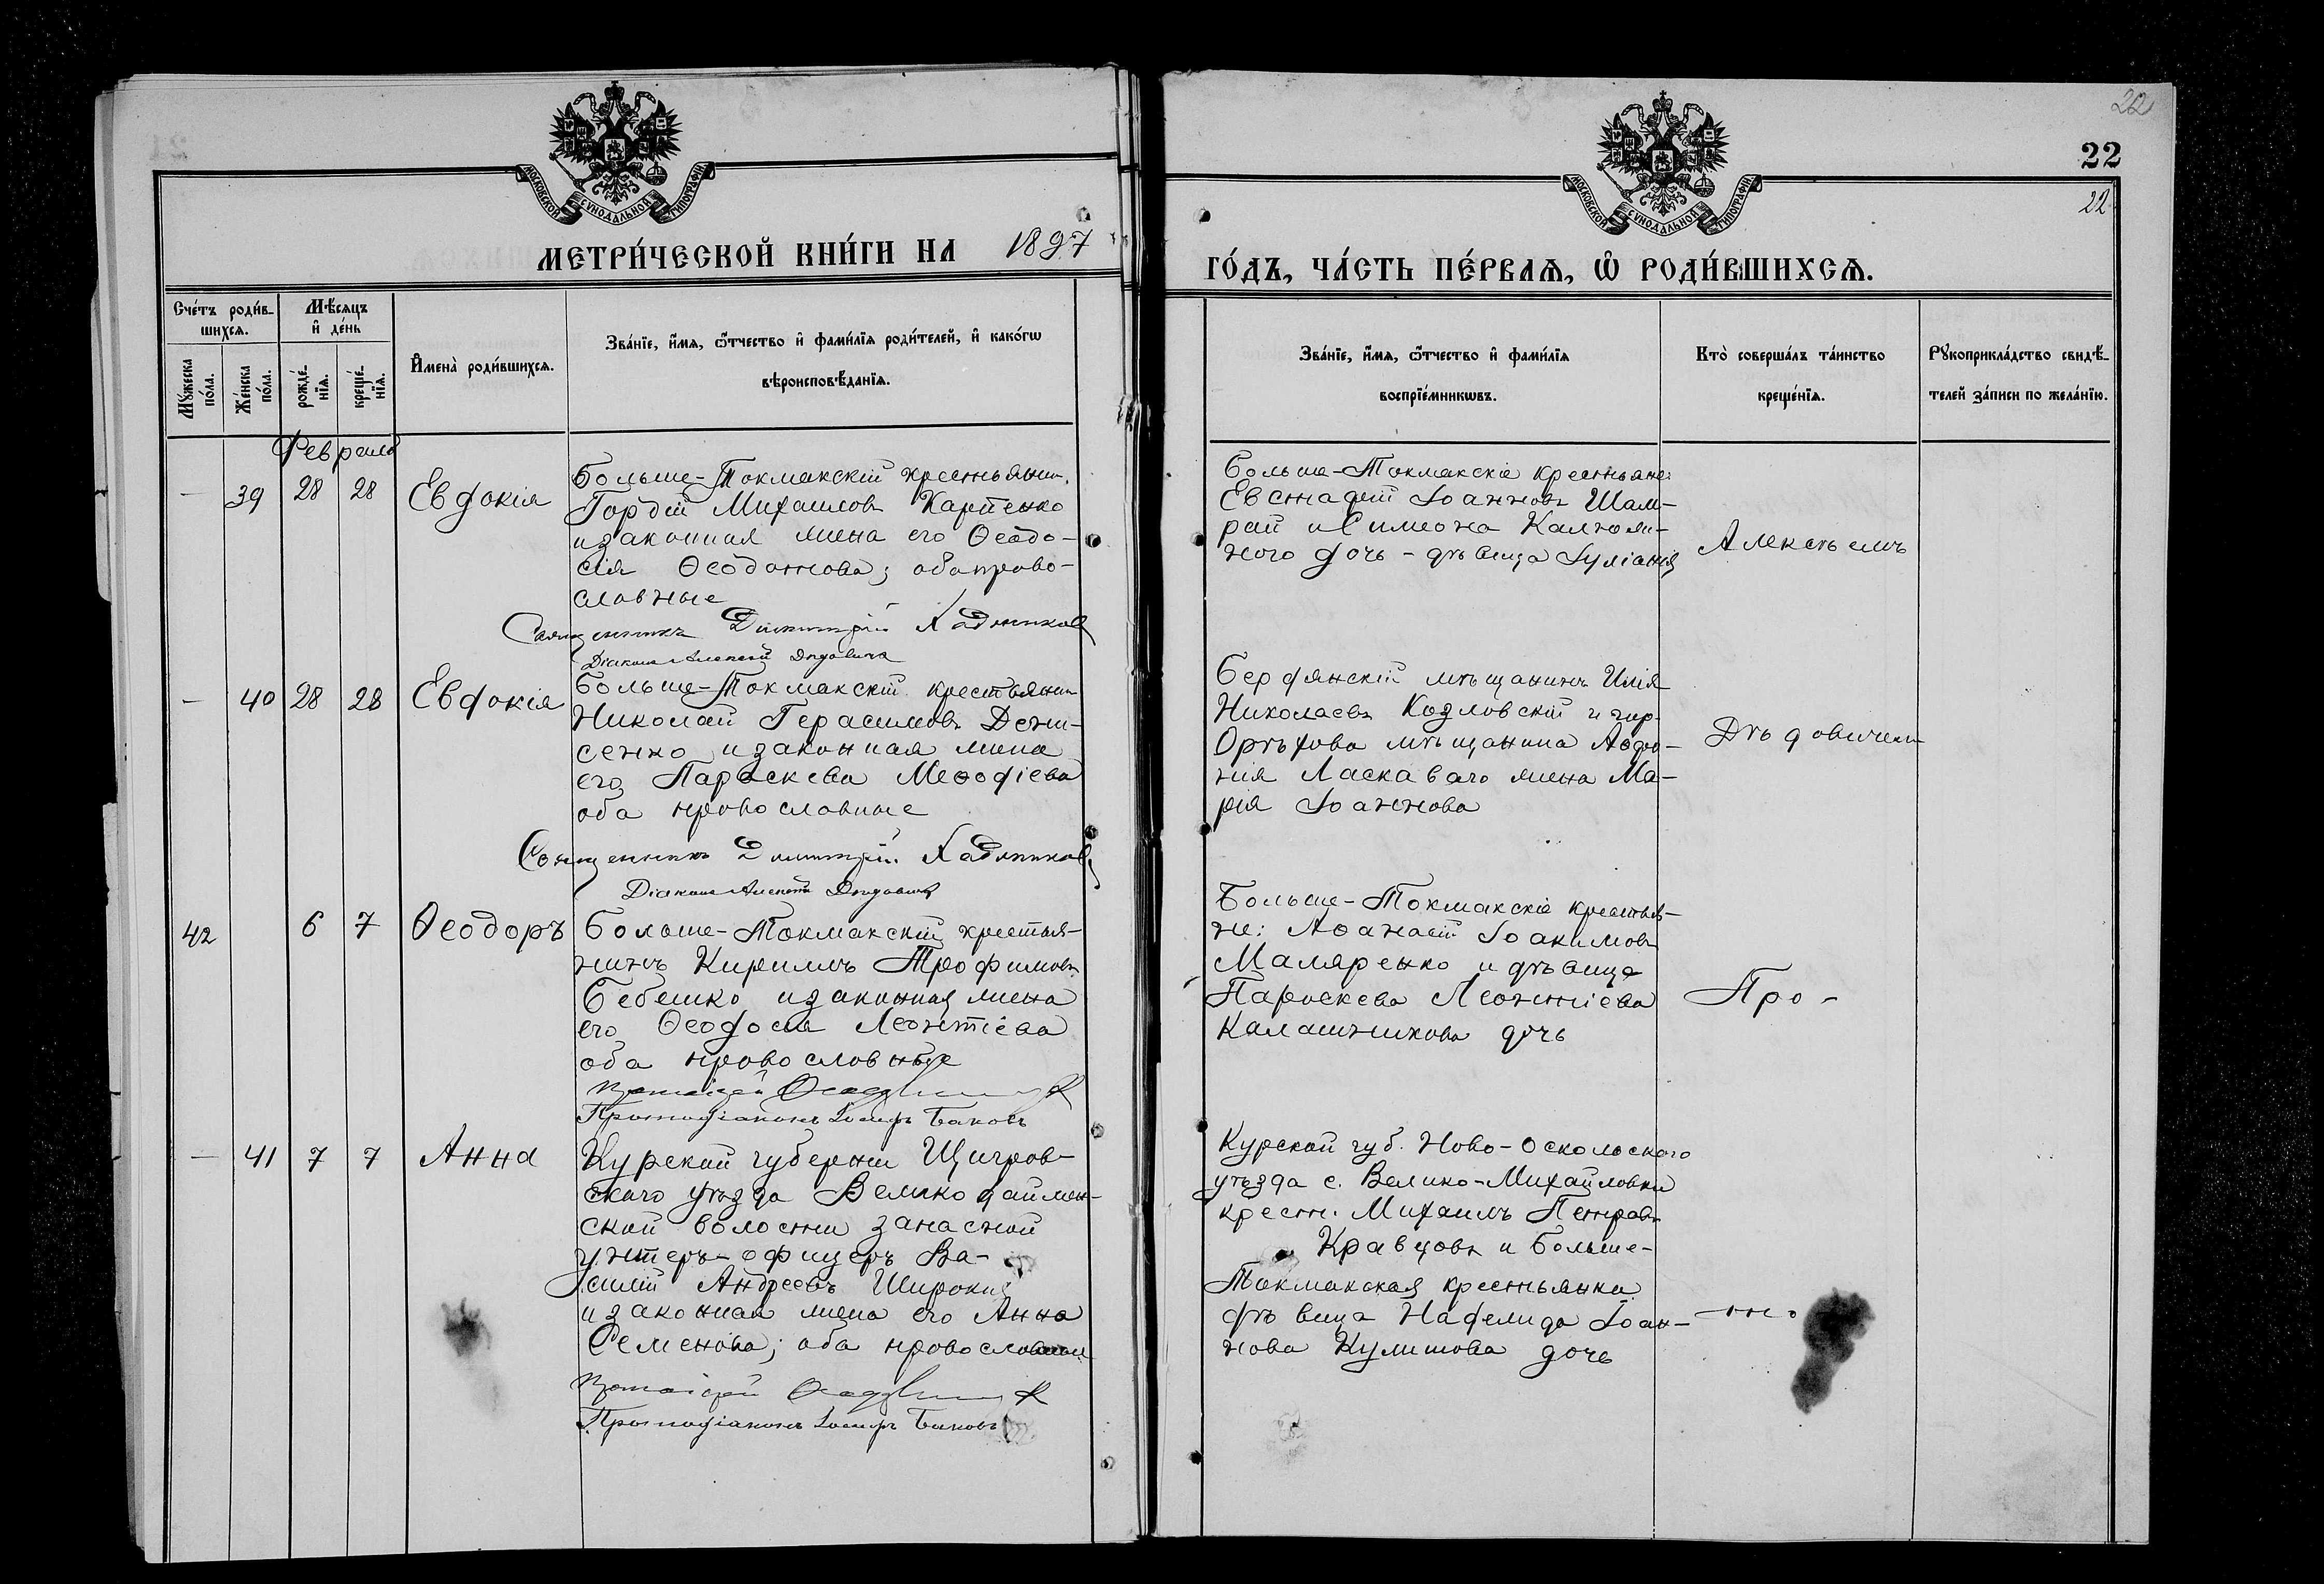 22
22
22
МОСКОВСКОЙ СѴНОДАЛЬНОЙ ТИПОГРАФІИ
МОСКОВСКОЙ СѴНОДАЛЬНОЙ ТИПОГРАФІИ
МЕТРИ́ЧЕСКОЙ КНИ́ГИ НА 1897
ГО́ДЪ, ЧА́СТЬ ПЕ́РВАЯ, Ѡ РОДИ́ВШИХСЯ.
Сче́тъ роди́в-
шихся.
Мꙋ́жеска
по́ла.
Же́нска
по́ла.
Мѣ́сяцъ
и҆ де́нь
рожде́-
нїя.
креще́-
нїя.
И҆мена̀ роди́вшихся.
Зва́нїе, и҆́мя, ѻ҆́тчество и҆ фами́лїя роди́телей, и҆ како́гѡ
вѣроисповѣ́данїя.
Зва́нїе, и҆́мя, ѻ҆́тчество и҆ фами́лїя
воспрїе́мникѡвъ.
Кто̀ соверша́лъ та́инство
креще́нїя.
Рꙋкоприкла́дство свидѣ́-
телей за́писи по жела́нїю.
Февраля
— 39 28 28 Евдокія
Больше-Токмакскій крестьянин.
Гордій Михаиловъ Карпенко
и законная жена его Ѳеодо-
сія Ѳеодотова; оба право-
славные
Священникъ Димитрій
Діаконъ Алексѣй Дѣдовичъ
Больше-Токмакскіе крестьяне:
Евстафій Іоанновъ Шам-
рай и Симеона Калюж-
ного дочь - дѣвица Іуліанія
Алексѣемъ
— 40 28 28 Евдокія
Больше-Токмакскій крестьянин
Николай Герасимовъ Дени-
сенко и законная жена
его Параскева Меѳодіева
оба православные
Священникъ Димитрій
Діаконъ Алексѣй Дѣдовичъ
Бердянскій мѣщанинъ Илія
Николаевъ Козловскій и гор.
Орѣхова мѣщанина Авдо-
нія Ласкаваго жена Ма-
рія Іоаннова
Дѣдовичемъ
42 6 7 Ѳеодоръ
Больше-Токмакскій крестья-
нинъ Кириллъ Трофимовъ
Бебешко и законная жена
его Ѳеодосія Леонтіева
оба православные
Протоіерей
Протодіаконъ Іосифъ Баковъ
Больше-Токмакскіе крестья-
не: Аѳанасій Іоакимовъ
Маляренко и дѣвица
Параскева Леонтіева
Калашникова дочь
Про-
— 41 7 7 Анна
Курской губерніи Щигров-
скаго уѣзда Велико
ской волости запасной
унтеръ-офицеръ Ва-
силій Андреевъ Широкій
и законная жена его Анна
Семенова; оба православные
Протоіерей
Протодіаконъ Іосифъ Баковъ
Курской губ. Ново-Оскольскаго
уѣзда с. Велико-Михайловки
крестн. Михаилъ Петровъ
Кравцовъ и Больше-
Токмакская крестьянка
дѣвица Іоан-
нова Кулишова дочь